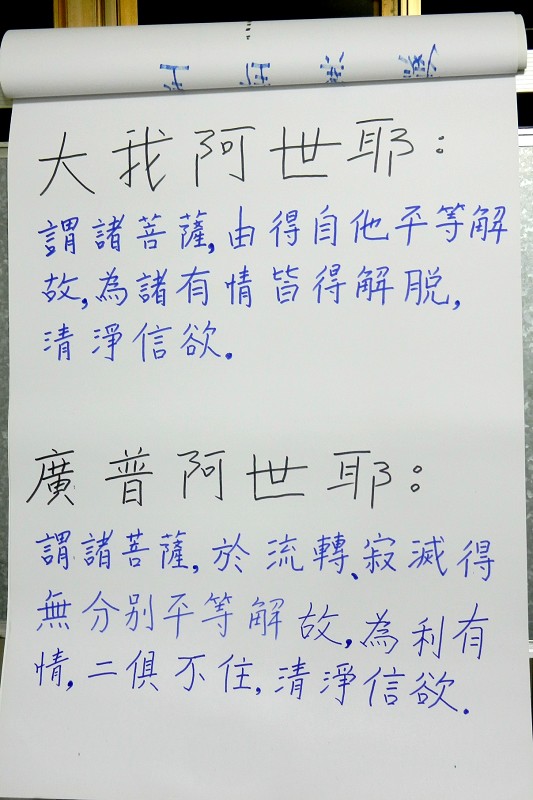 大我阿世耶：
謂諸菩薩,由得自他平等解
故,為諸有情皆得解脱,
清淨信欲.
廣普阿世耶：
謂諸菩薩,於流轉、寂滅得
無分別平等解故,為利有
情,二俱不住,清淨信欲.